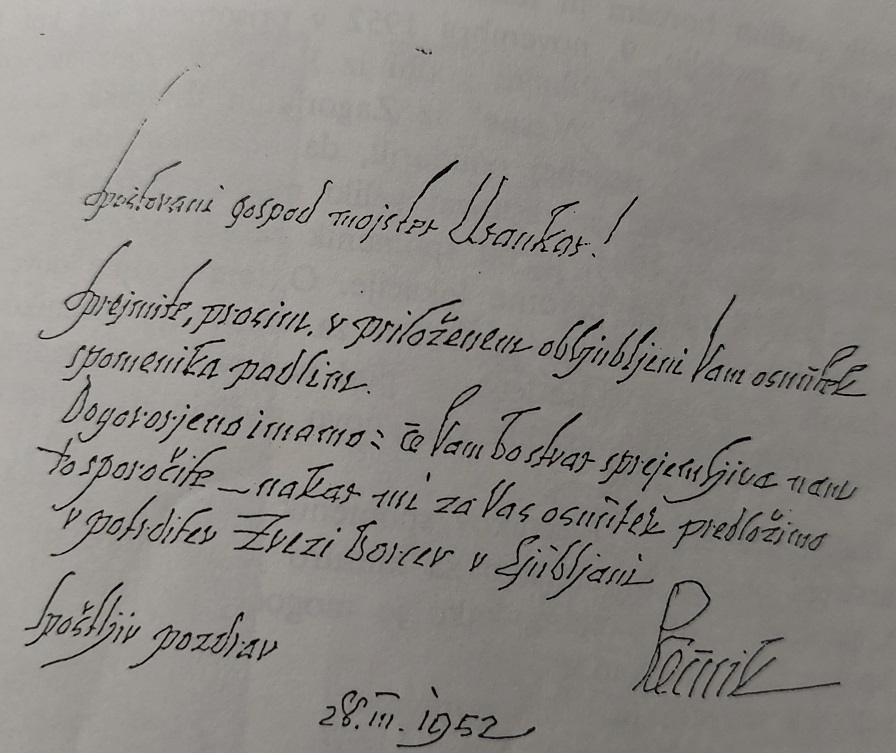 Spoštovani gospod mojster Urankar!
Sprejmite, prosim, v priloženem obljubljeni Vam osnutek
spomenika padlim.
Dogovorjeno imamo: če Vam bo stvar sprejemljiva nam
to sporočite – nakar mi za Vas osnutek predložimo
v potrditev Zvezi borcev v Ljubljani
Spoštljiv pozdrav
28. III. 1952